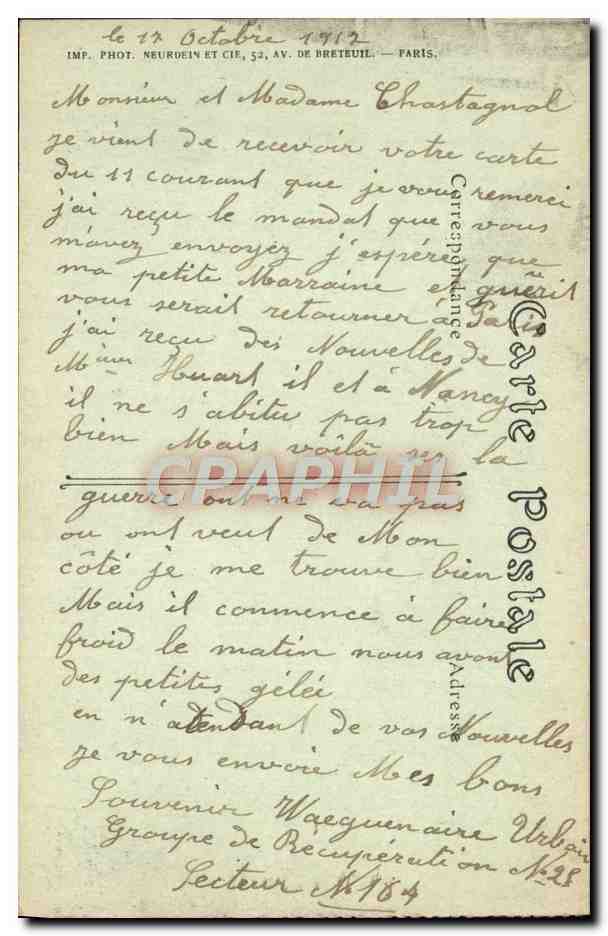 le 17 Octobre 1917
IMP. PHOT. NEURDEIN ET CIE, 52, AV. DE BRETEUIL. — PARIS.
Monsieur et Madame Chastagnol
je vient de recevoir votre carte
du 11 courant que je vous remerci
j'ai reçu le mandat que vous
m'avez envoyez j'espére que
ma petite Marraine et guérit
vous serait retourner à Paris
j'ai reçu des Nouvelles de
Huart il et à Nancy
il ne s'abitu pas trop
bien Mais voilà ses la
guerre ont ne va pas
ou ont veut de Mon
côté je me trouve bien
Mais il commence à faire
froid le matin nous avont
des petites gélée
en n'atendant de vos Nouvelles
je vous envoie Mes bons
Souvenir Waeguenaire Urbain
Groupe de Récupération No 28
Secteur No 164
Correspondance
Adresse
Carte Postale
CPAPHIL